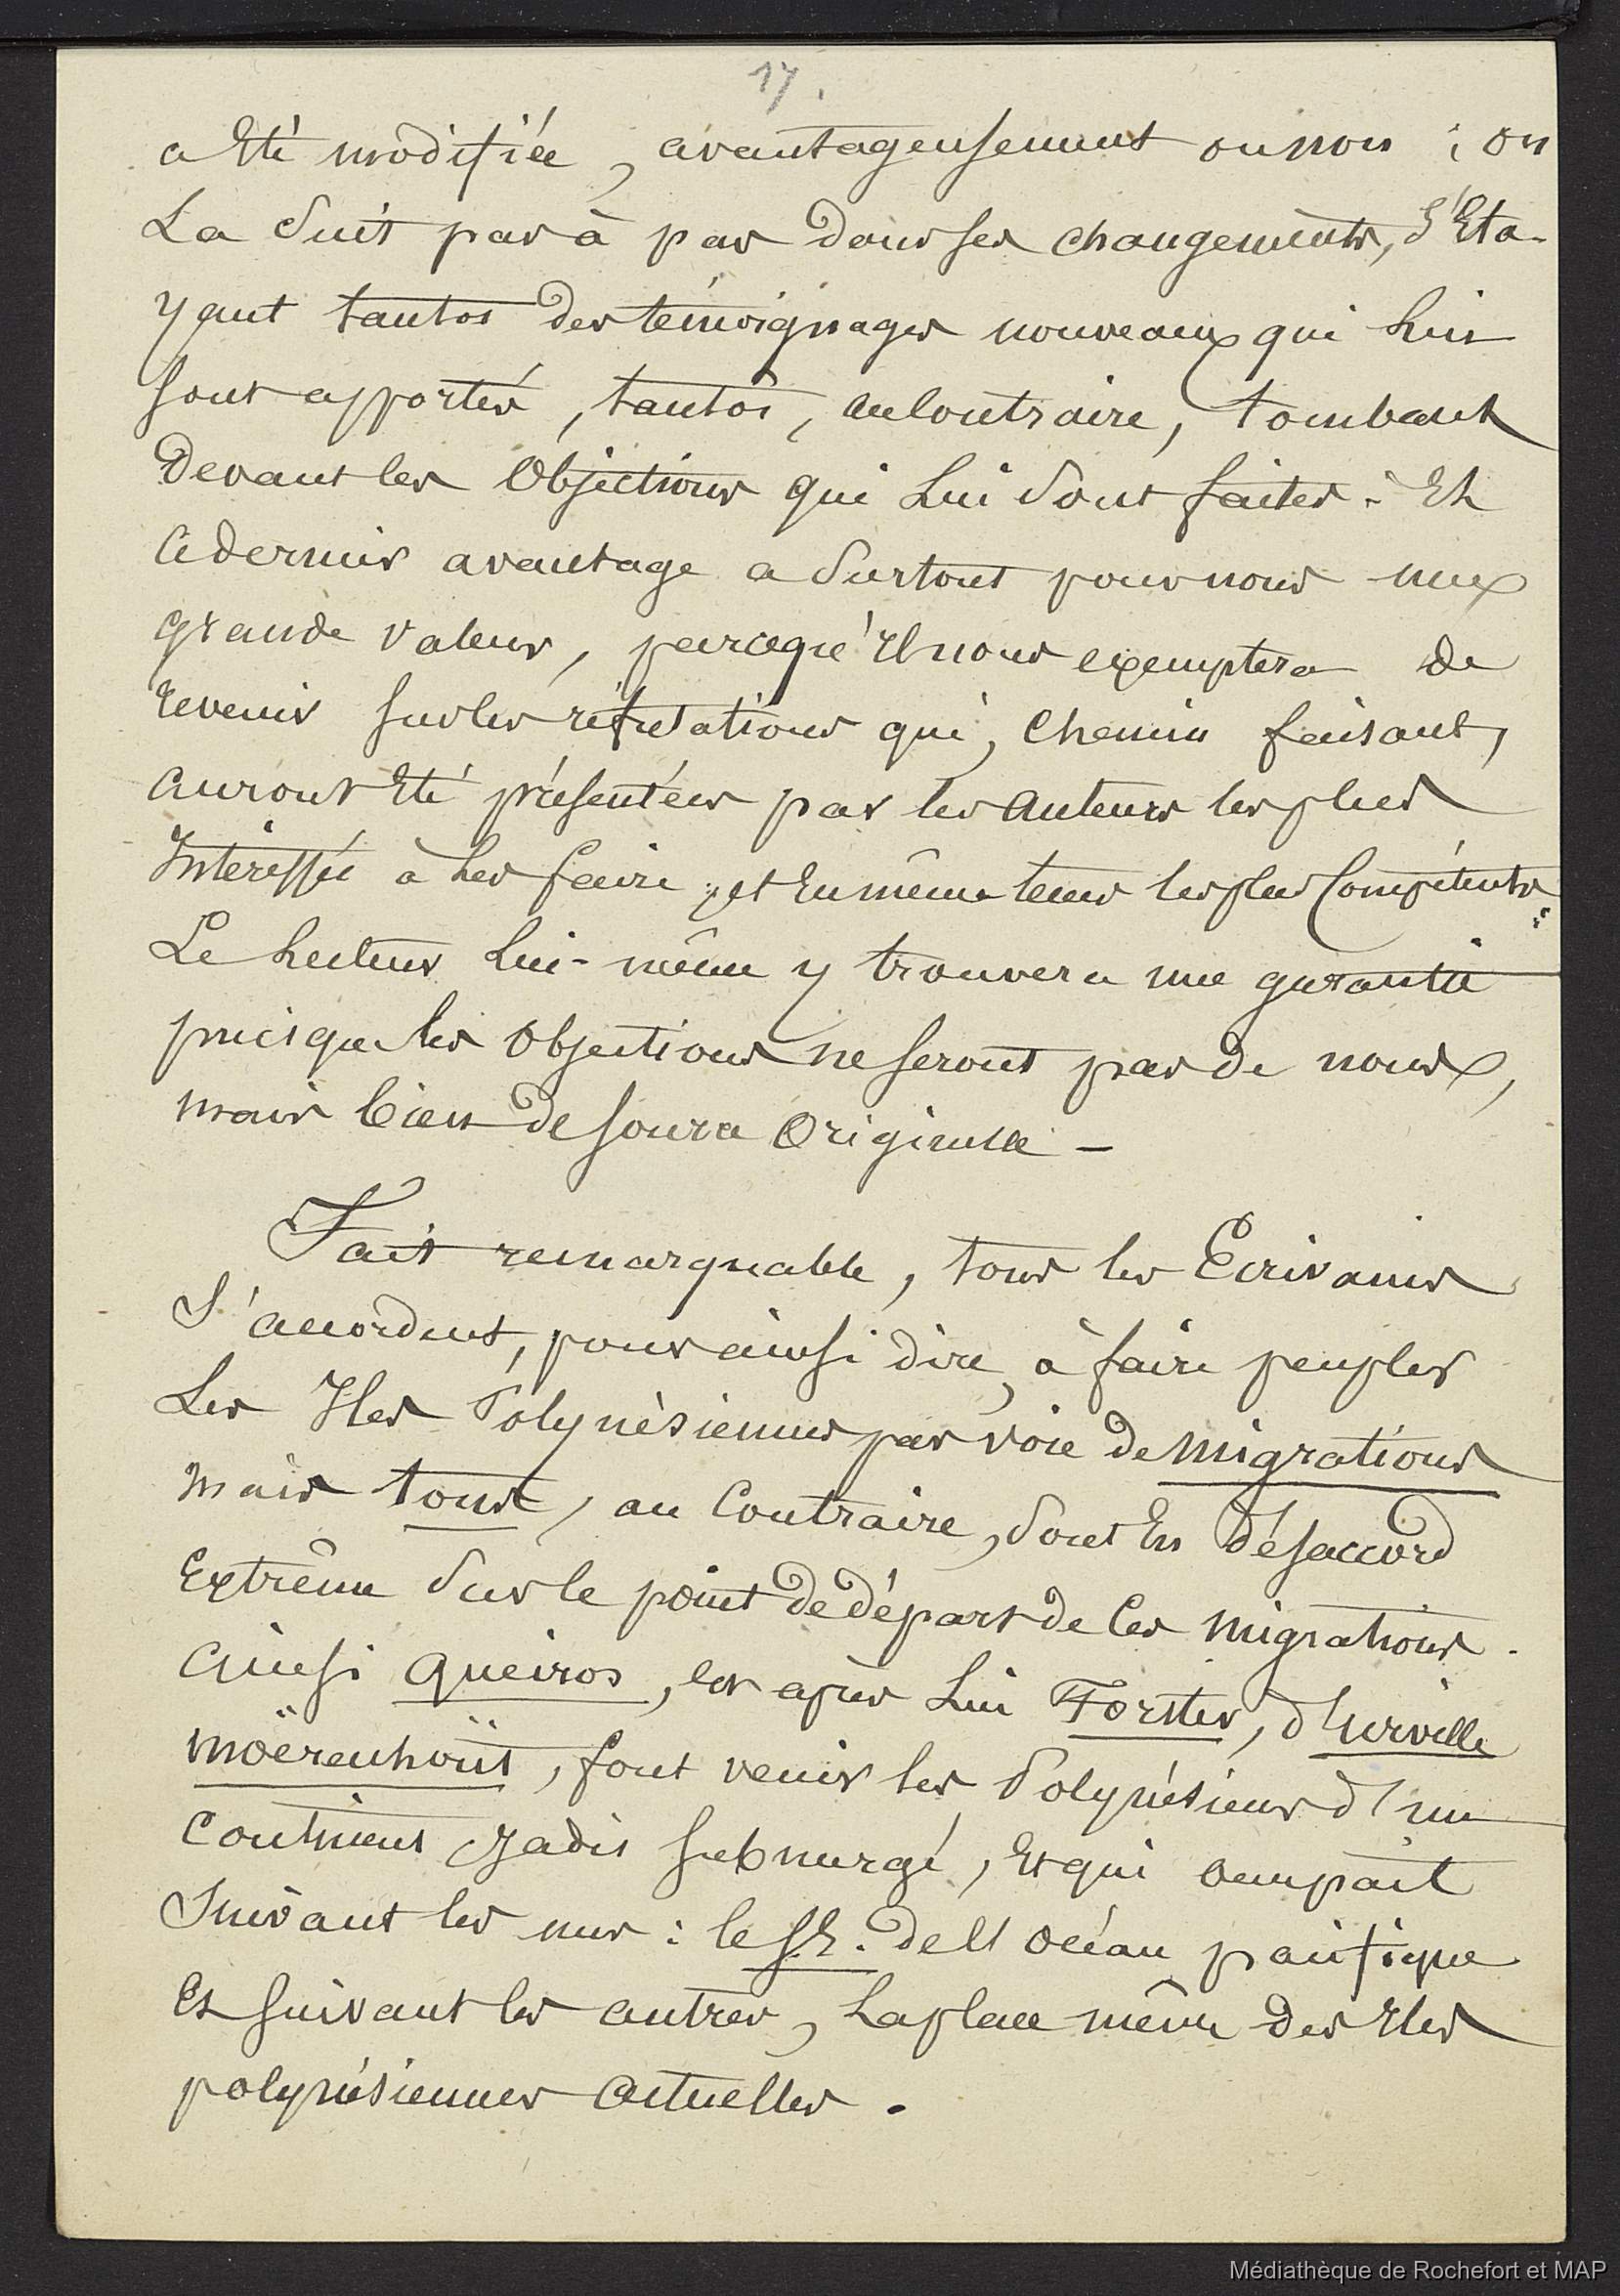 17.
a été modifiée, avantageusement ou non ; on
La suit pas à pas dans ses changements, s'éta-
yant tantot des témoignages nouveaux qui lui
sont apportés, tantôt, au contraire, tombant
devant les objections qui lui sont faites. Et
ce dernier avantage a surtout pour nous une
grande valeur, parceque il nous exemptera de
revenir sur les réfutations qui, chemin faisant,
auront été présentées par les auteurs les plus
intéressés à les faire, et en même tems les plus compétents :
Le lecteur lui-même y trouvera une garantie
puisque les objections ne seront pas de nous,
mais bien de source originelle -
Fait remarquable, tous les Ecrivains
s'accordent, pour ainsi dire, à faire peupler
Les Iles Polynésiennes par voie de migrations
mais tous, au contraire, sont en désaccord
extrême sur le point de départ de ces migrations.
Ainsi Queiros, et après lui Forster, d'Urville
Moërenhoüt, font venir les Polynésiens d'un
continent jadis submergé, et qui occupait
suivant les uns : le S.E. de l'océan pacifique
et suivant les autres, la place même des Iles
polynésiennes actuelles.
Médiathèque de Rochefort et MAP